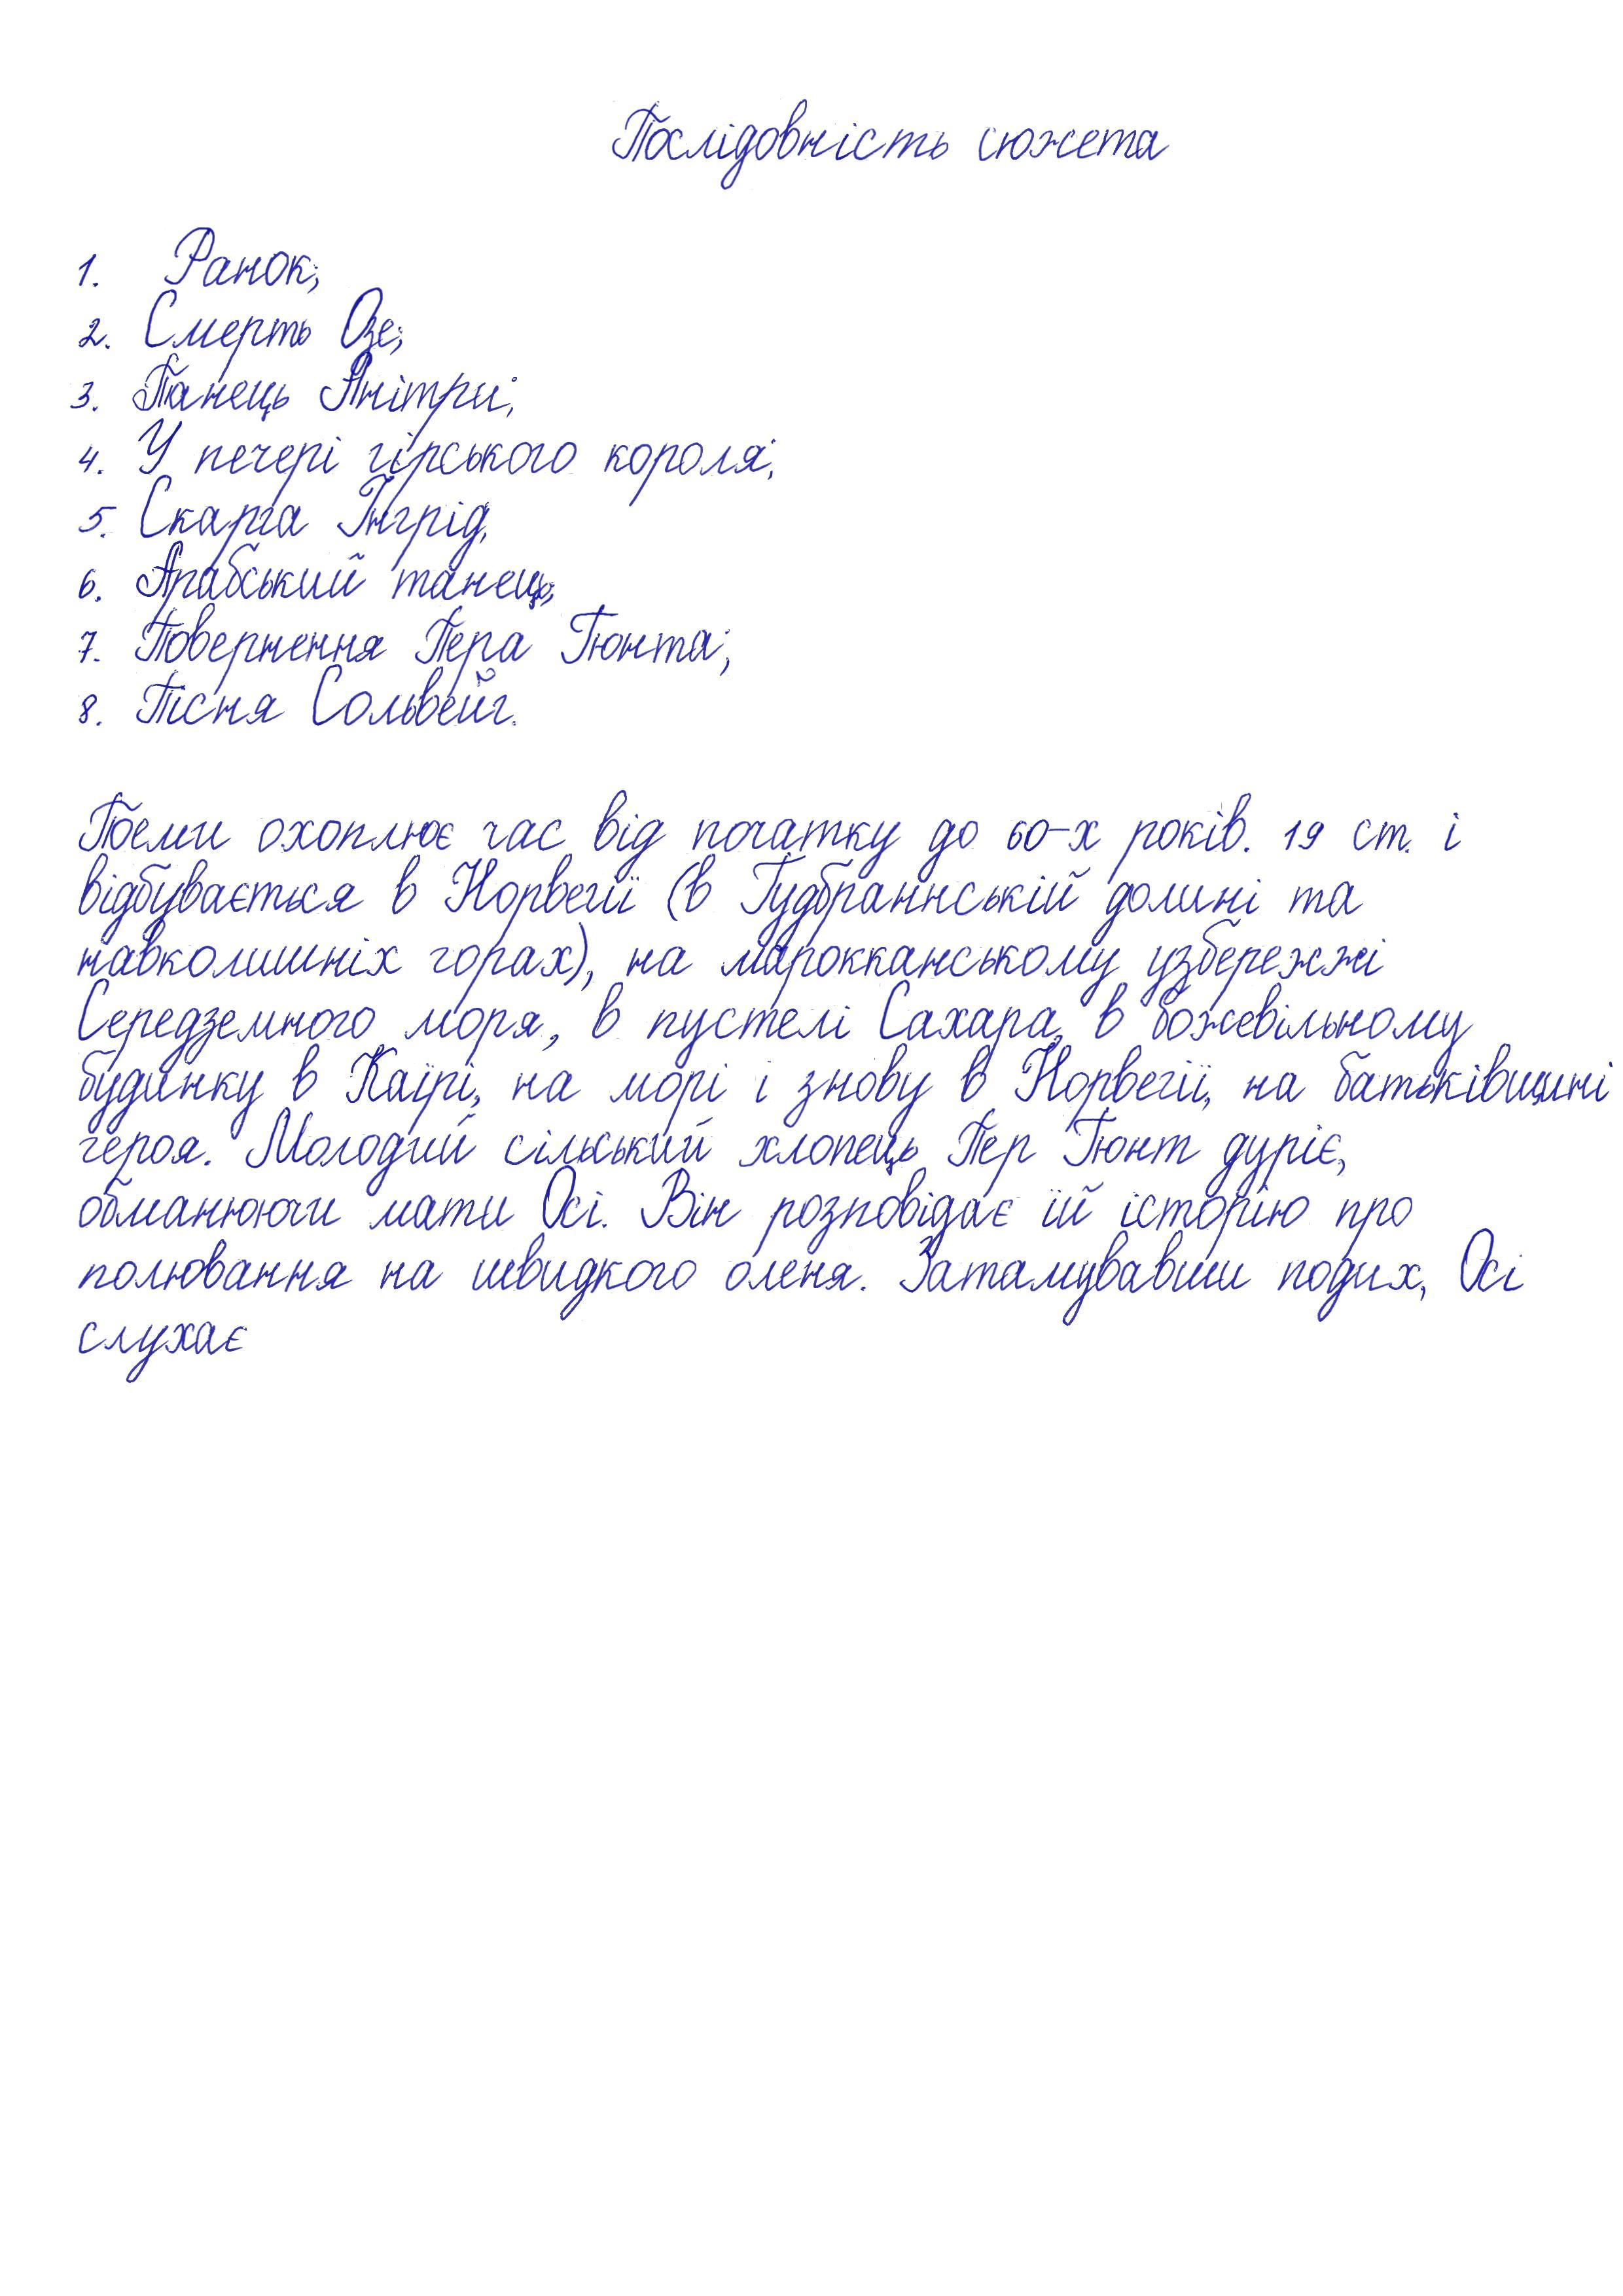 Послідовність сюжета
1. Ранок;
2. Смерть Озе;
3. Танець Анітри;
4. У печері гірського короля;
5. Скарга Інгрід;
6. Арабський танець;
7. Повернення Пера Гюнта;
8. Пісня Сольвейг.
Поеми охоплює час від початку до 60-х років. 19 ст. і
відбувається в Норвегії (в Гудбраннській долині та
навколишніх горах), на марокканському узбережжі
Середземного моря, в пустелі Сахара, в божевільному
будинку в Каїрі, на морі і знову в Норвегії, на батьківщині
героя. Молодий сільський хлопець Пер Гюнт дуріє,
обманюючи мати Осі. Він розповідає їй історію про
полювання на швидкого оленя. Затамувавши подих, Осі
слухає